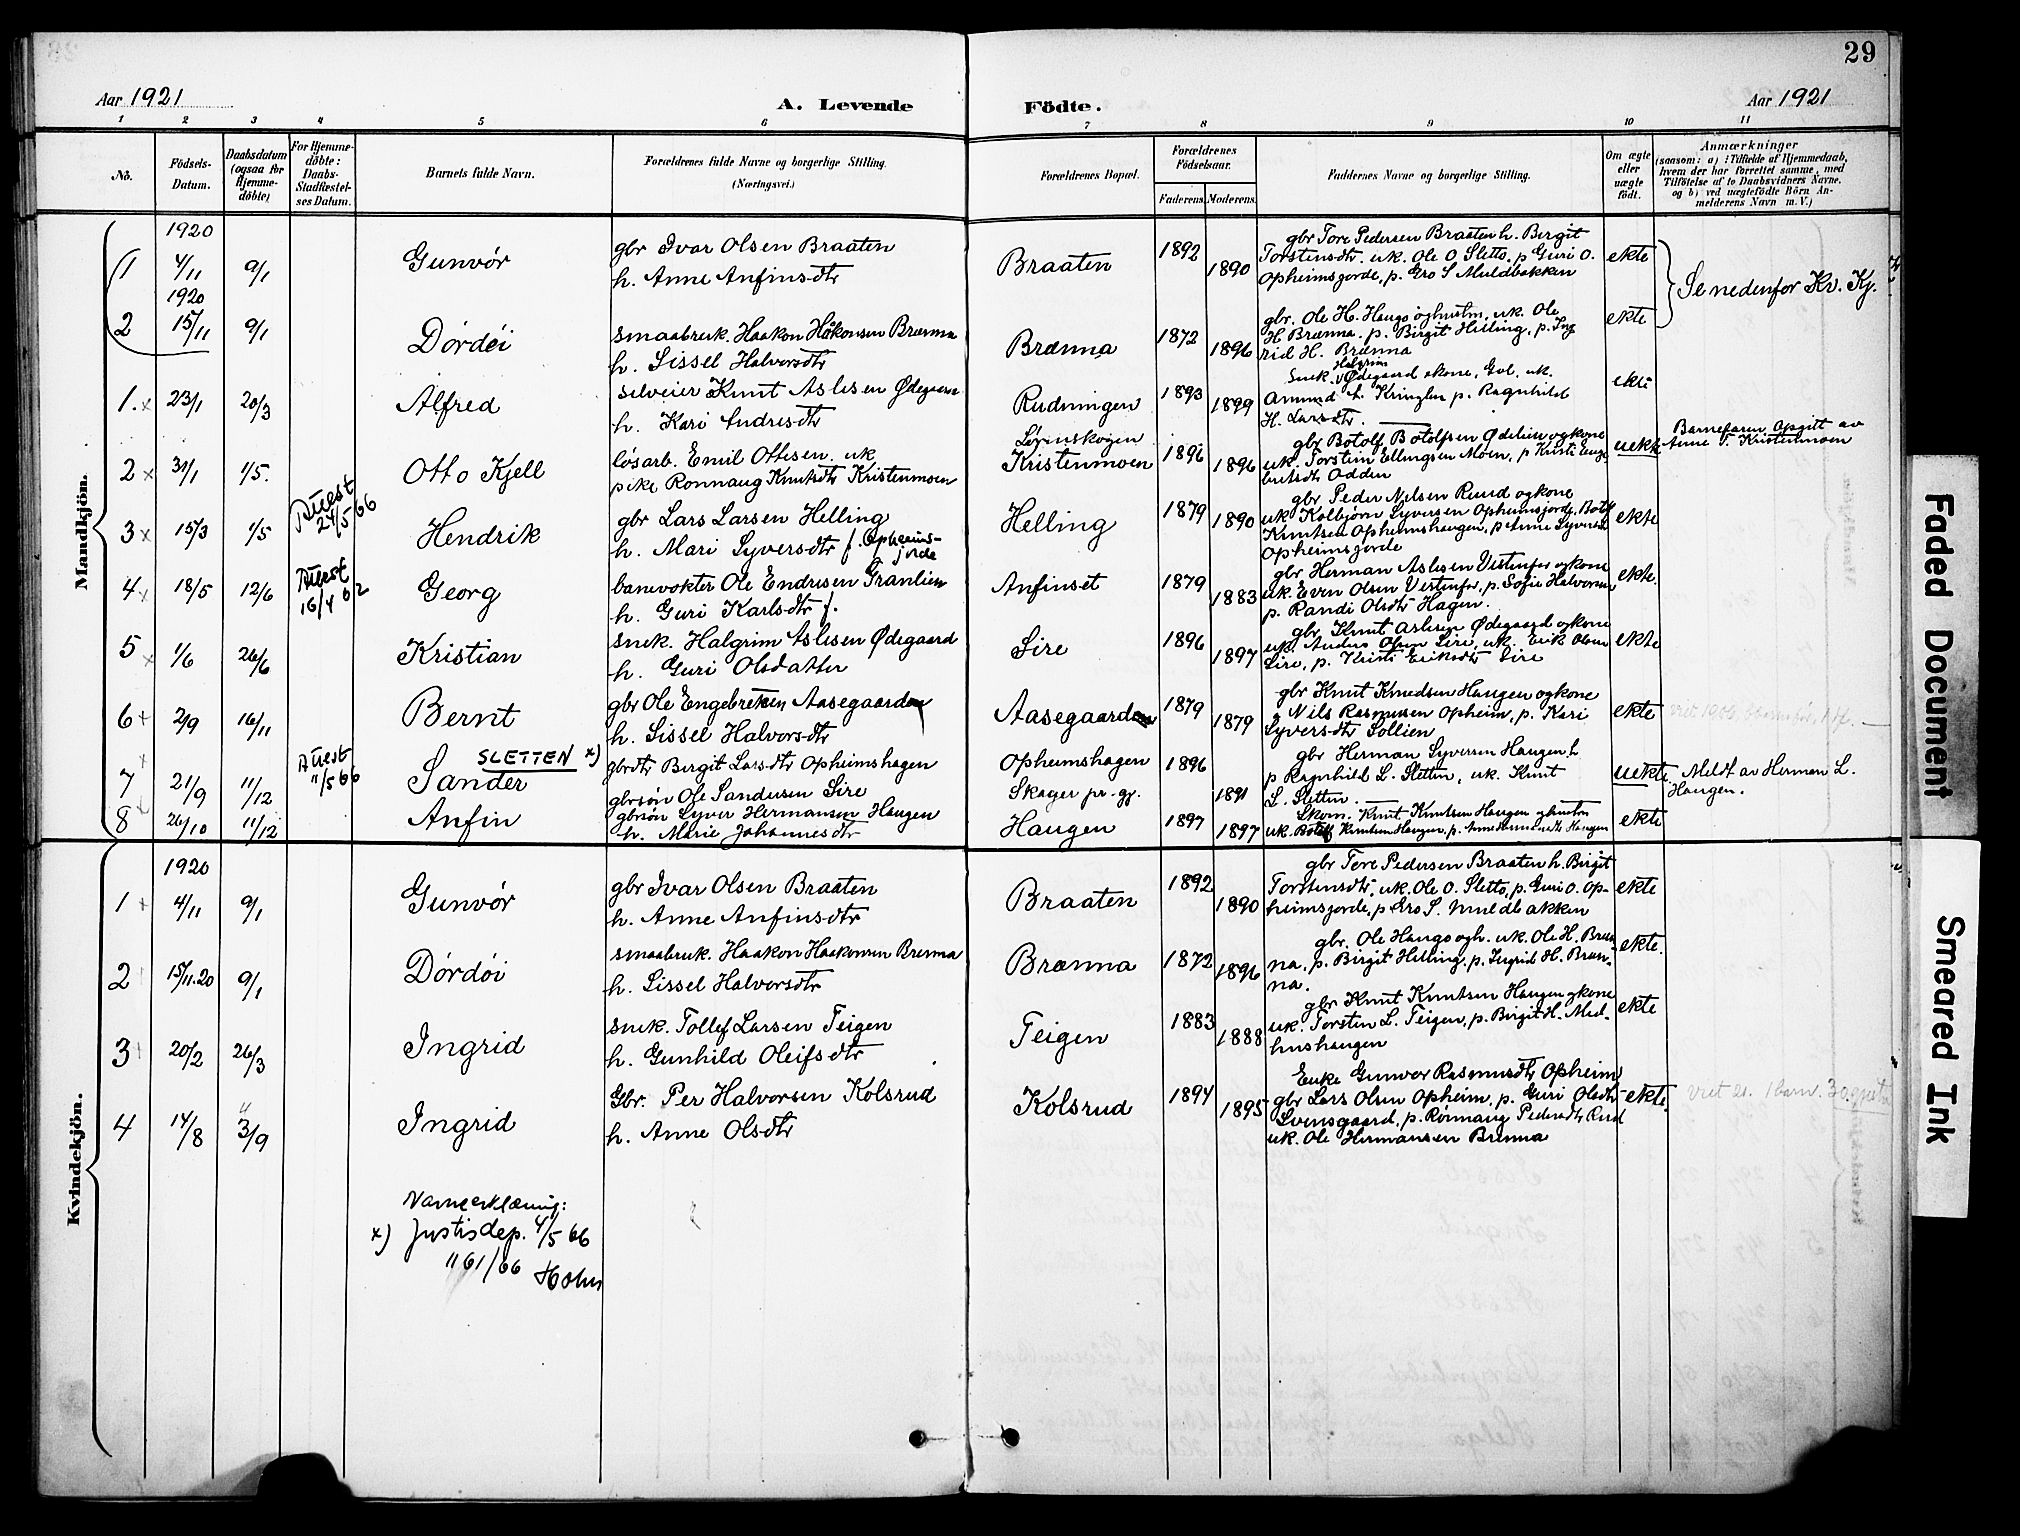 29
Aar 1921
A. Levende Födte.
Aar 1921
1 2 3 4 5 6 7 8 9 10 11
No.
Födsels-Datum.
Daabsdatum (ogsaa for Hjemme-döbte)
For Hjemme-döbte: Daabs-Stadfæstel-ses Datum.
Barnets fulde Navn.
Forældrenes fulde Navne og borgerlige Stilling.
(Næringsvei.)
Forældrenes Bopæl.
Forældrenes Födselsaar.
Faderens Moderens
Faddernes Navne og borgerlige Stilling.
Om ægte eller uægte födt.
Anmærkninger
(saasom: a) i Tilfælde af Hjemmedaab,
hvem der har forrettet samme, med
Tilföielse af to Daabsvidners Navne,
og b) ved uægtefödte Börn An-
melderens Navn m. V.)
Mandkjön.
1920
1 4/11 9/1 Gunvór
gbr Ivar Olsen Braaten
h. Anne Anfinsdtr
Braaten 1892 1890
gbr Tore Pedersen Braaten h. Birgit
Torstensdtr. uk. Ole O. Sletto, p Guri O.
Opheimsjorde, p. Gro S Muldbakken
ekte
Se nedenfor Kv. Kj.
1920
2 15/11 9/1 Dórdói
smaabruk. Haakon Håkonsen Brænna
h. Sissel Halvorsdtr
Brænna 1872 1896
gbr. Ole H. Haugo og hustru, uk. Ole
H Brænna. p. Birgit Helling, p. Ing
rid H. Brænna
ekte
1. x 23/1 20/3 Alfred
Knut Aslesen Ødegaard
h. Kari Andresdtr
Rudningen 1893 1899
Snek. Halgrim Ødegaard okone, Gol. uk.
Amund A. Kringlen p. Ragnhild
H. Larsdtr.
ekte
2 x 31/1 1/5. Otto Kjell
løsarb. Emil Ottesen. uk
pike Ronnaug Knutsdtr Kristenmoen
Kristenmoen 1896 1896
gbr Botolf Botolfsen Ødelien ogkone
uk. Torstein Ellingsen Moen, p Kristi Enge-
bretsdt Odden
uekte
Barnefaren Opgitt av
Anne T. Kristenmoen
3 x 15/3 1/5
Attest
24/5 66
Hendrik
gbr Lars Larsen Helling
h. Mari Syversdtr f. Opheims-
jorde
Helling 1879 1890
gbr Peder Nilsen Ruud ogkone
uk Kolbjørn Syversen Opheimsjorde, Botolf
Knutsen Opheimshaugen, p Anne Syversdt
Opheimsjorde
ekte
4 x 18/5 12/6
Attest
16/4 62
Georg
banevokter Ole Endresen Granlien
h. Guri Karlsdtr f.
Anfinset 1879 1883
gbr Herman Aslesen Vestenfor ogkone
uk. Even Olsen Vestenfor, p. Sofie Halvorsen
p. Randi Olsdtr Hagen.
ekte.
5 x 1/6 26/6 Kristian
snek. Halgrim Aslesen Ødegaard
h. Guri Olsdatter
Sire 1896 1897
gbr Knut Aslesen Ødegaard ogkone
uk. Anders Olsen Sire, uk. Erik Olsen
Sire, p. Kristi Eriksdtr Sire
ekte
6 + 2/9 16/11 Bernt
gbr Ole Engebretsen Aasegaarden
h. Sissel Halvorsdtr
Aasegaarden 1879 1879
gbr Knut Knudsen Haugen ogkone
Nils Rasmussen Opheim, p. Kari
Syversdtr Sollien
ekte
7 21/9 11/12
Attest
11/5 66
SLETTEN x)
Sander
gbrdtr Birgit Larsdtr Opheimshagen
gbrsøn Ole Sandersen Sire
Opheimshagen 1896
Skager pr. gj. 1891
gbr Herman Syversen Haugen h
p Ragnhild L. Sletten, uk. Knut
L. Sletten.
uekte
Meldt av Herman L.
Haugen.
8 26/10 11/12 Anfin
gbrsøn Syver Hermansen Haugen
h. Marie Johannesdtr
Haugen 1897 1897
Skom. Knut Knutsen Haugen oghustru
uk. Botolf Knutsen Haugen, p. Haugen
ekte
Kvindekjön.
1920
1 + 4/11 9/1 Gunvór
gbr Ivar Olsen Braaten
h. Anne Anfinsdtr
Braaten 1892 1890
gbr Tore Pedersen Braaten h. Birgit
Torstensdtr, uk. Ole O. Sletto, p. Guri O. Op-
heimsjorde, p Gro S. Muldbakken
ekte
2 15/11.20 9/1 Dórdói
smaabruk. Haakon Haakonsen Brenna
h. Sissel Halvorsdtr
Brænna 1872 1896
gbr. Ole Haugo ogh. uk. Ole H. Bræn
na, p. Birgit Helling, p. Ingrid H. Bræn-
na.
ekte.
3 20/2 26/3 Ingrid
snek. Tollef Larsen Teigen
h. Gunhild Oleifsdtr
Teigen 1883 1888
gbr Knut Knutsen Haugen ogkone
uk. Torsten L. Teigen, p. Birgit H. Med-
hushaugen
ekte
4 14/8 4/9 Ingrid
Gbr. Per Halvorsen Kolsrud
h. Anne Olsdtr
Kolsrud 1894 1895
Enke Gunvor Rasmusdtr Opheim
gbr Lars Olsen Opheim, p. Guri Olsdt
Svensgaard, p. Rønnaug Pedersdtr Rud
uk. Ole Hermansen Brenna
ekte.
Navneerklæring:
x) Justisdep. 4/5 66
1161/66 Holm
Faded Document
Smeared Ink